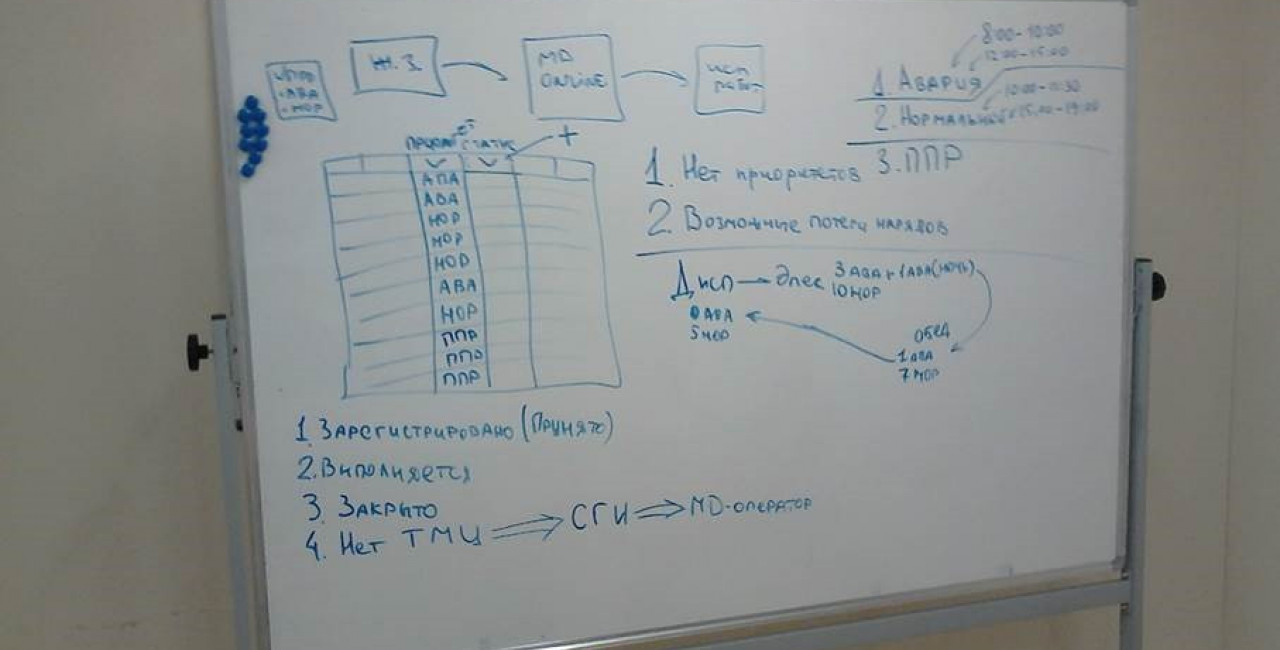 - АВА
- НОР
Ж.З
MD
ONLINE
ИСП
РАБОТ
8:00-10:00
12:00-15:00
1. АВАРИЯ
10:00-11:30
2. НОРМАЛЬНОЙ 15:00-19:00
3. ППР
СТАТУС +
АПА
АВА
НОР
НОР
НОР
АВА
НОР
ППР
ППР
ППР
1. Нет приоритетов
2. Возможные потери нарядов
Дисп — Элек 3 АВА + 1 АВА (НОЧЬ)
10 НОР
0 АВА
5 НОР
ОБЕД
1 АВА
7 НОР
1. ЗАРЕГИСТРИРОВАНО (ПРИНЯТО)
2. ВЫПОЛНЯЕТСЯ
3. ЗАКРЫТО
4. НЕТ ТМЦ => СГИ => MD-ОПЕРАТОР